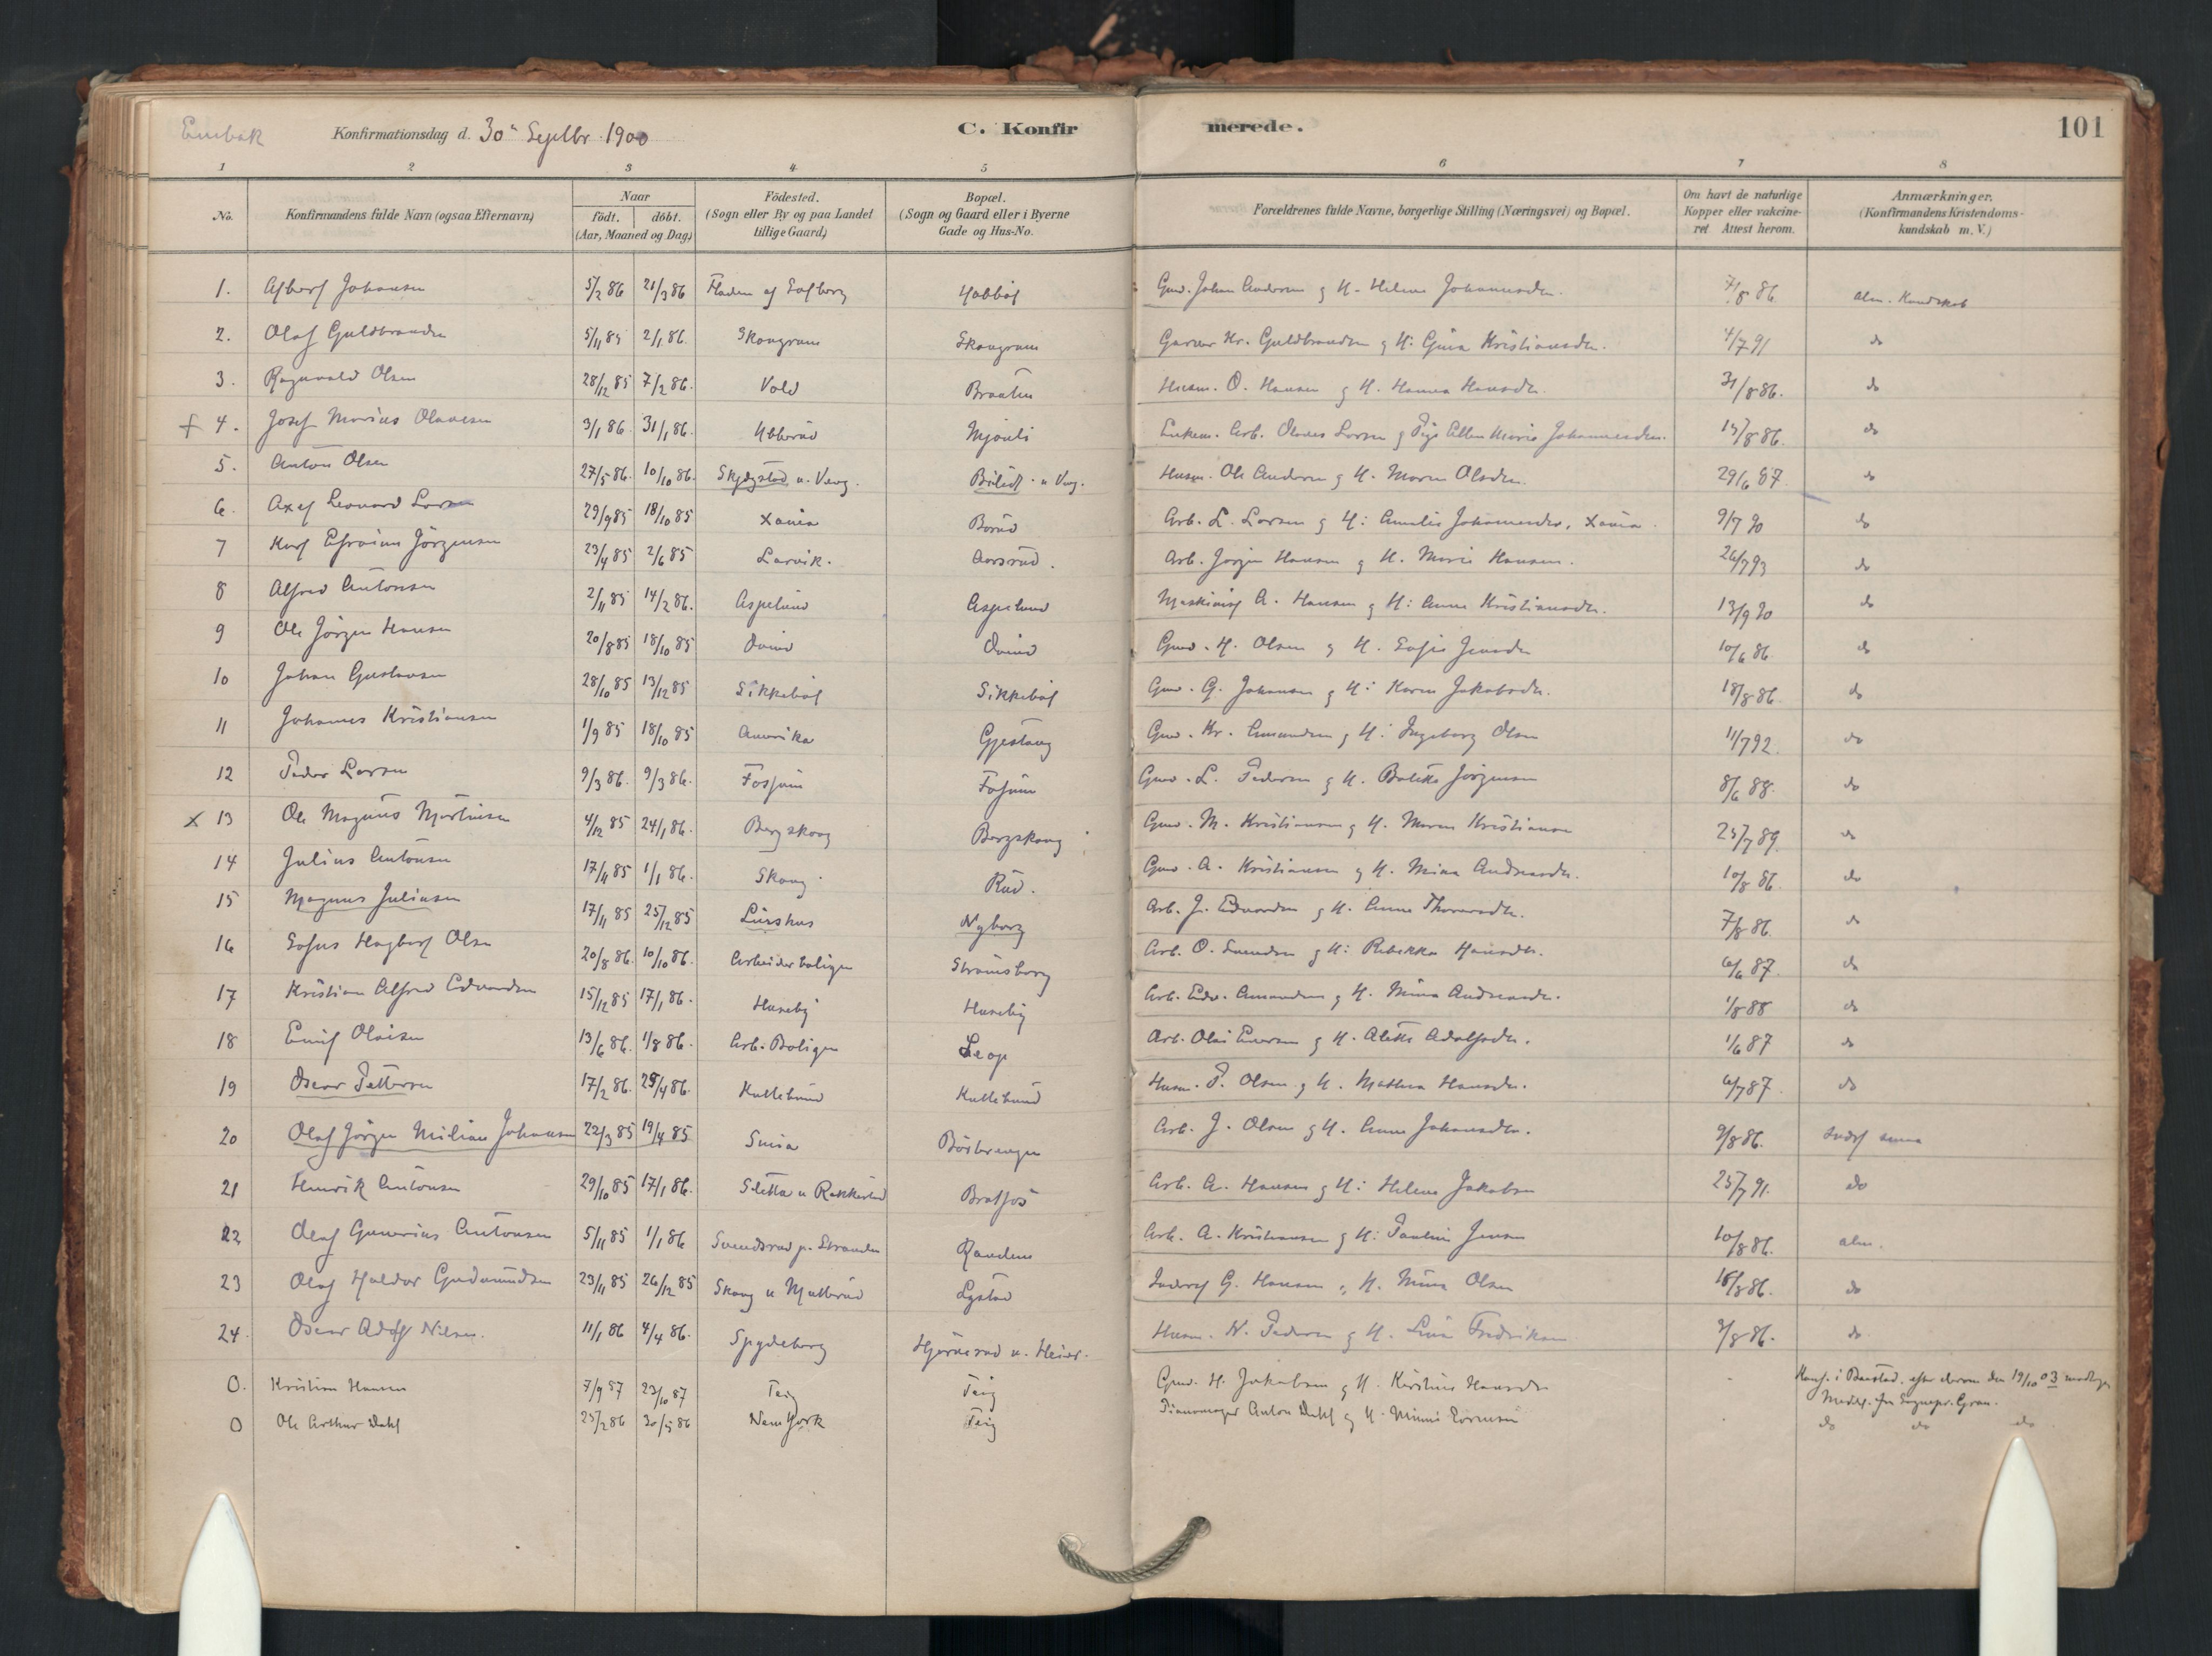 Konfirmationsdag d. 30' Septbr. 1900
C. Konfirmerede.
101
1 2 3 4 5 6 7 8
No. Konfirmandens fulde Navn (ogsaa Efternavn) Naar födt. döbt. (Aar, Maaned og Dag) Födested. (Sogn eller By og paa Landet tillige Gaard) Bopæl. (Sogn og Gaard eller i Byerne Gade og Hus-No. Forældrenes fulde Navne, borgerlige Stilling (Næringsvei) og Bopæl. Om havt de naturlige Kopper eller vakcineret Attest herom. Anmærkninger. (Konfirmandens Kristendomskundskab m. V.)
1. Johansen 5/2 86 21/3 86 Gmd. Johan Andersen g H. Helene Johannesdtr. 7/8 86 alm. Kundskab
2. Olaf Guldbrandsen 5/11 85 2/1 86. Skaugrum Skaugrum Garver Kr. Guldbrandsen g H: Gina Kristiansdtr. 4/7 91 do
3. Ragnvald Olsen 28/12 85 7/2 86. Vold Braaten Husm. O. Hansen g H. Hansdtr. 31/8 86. do
+ 4. Josef Marius Olavesen 3/1 86. 31/1 86. Mjönli Enkem. Arb. Olaves Larsen g Pige Marie Johannesdtr. 19/8 86. do
5. Anton Olsen 27/5 86. 10/10 86. Husm. Ole Andersen g H. Maren Olsdtr. 29/6 87. do
6. Axel Leonard Larsen 29/9 85 18/10 85 Xania Borud Arb. L. Larsen g H: Amalie Johannesdtr, Xania. 9/7 90 do
7 Karl Efraim Jörgensen 23/4 85 2/6 85 Larvik. Aarsrud. Arb. Jörgen Hansen g H. Marie Hansen. 26/7 93 do
8 Alfred Antonsen 2/11 85 14/2 86. Aspelund Aspelund Maskinist A. Hansen g H: Anna Kristiansdtr. 13/9 90 do
9 Ole Jörgen Hansen 20/8 85 18/10 85 Gmd. H. Olsen g H. Sofie Jensdtr 10/6 86 do
10 Johan Gustavsen 28/10 85 13/12 85 Sikkeböl Sikkeböl Gmd. G. Johansen g H: Karen Jakobsdtr. 18/8 86. do
11 Johannes Kristiansen 1/9 85 18/10 85 Amerika Gjestang Gmd. Kr. Amundsen g H: Ingeborg Olsen 11/7 92. do
12 Peder Larsen 9/3 86. 9/3 86. Fossum Fosum Gmd. L. Pedersen g H. Bolette Jörgensen 8/6 88. do
x 13 Ole Magnus Martinsen 4/12 85 24/1 86. Bergskaug Bergskaug Gmd. M. Kristiansen g H. Maren Kristiansen 25/7 89. do
14 Julius Antonsen 17/11 85 1/1 86. Skaug Rud. Gmd. A. Kristiansen g H. Mina Andreasdtr. 10/8 86. do
15 Magnus Juliusen 17/11 85 25/12 85 Nyborg Arb. J. Edvardsen g H. Anne Thorersdtr. 7/8 86. do
16 Sofus Hagbart Olsen 20/8 86. 10/10 86. Arbeiderboligen Strömsborg Arb. O. Svendsen g H: Rebekka Hansdtr. 6/6 87. do
17 Kristian Alfred Edvardsen 15/12 85 17/1 86. Huseby Huseby Arb. Edv. Amundsen g H. Mina Andreasdtr. 1/8 88 do
18 Emil Olaisen 13/6 86. 1/8 86. Arb. Boligen Leop Arb. Olai Eversen g H. Alette Adolfsdtr. 1/6 87 do
19 Oscar Pettersen 17/2 86. 25/4 86. Kullebund Kullebund Husm. P. Olsen g H. Mathea Hansdtr. 6/7 87. do
20 Olaf Jörgen Milian Johansen 22/3 85 19/4 85 Börbrengen Arb. J. Olsen g H. Anne Johansdtr. 9/8 86.
21 Henrik Antonsen 29/10 85 17/1 86. Sletta i Rakkestad Bratfos Arb. A. Hansen g H: Helene Jakobsen 25/7 91. do
22 Olaf Gunerius Antonsen 5/11 85 1/1 86 Arb. A. Kristiansen g H: Pauline Jensen 10/8 86. alm.
23 Olaf Haldor Gudmundsen 29/11 85 26/12 85 Lystad G. Hansen g H. Mina Olsen 16/8 86. do
24. Oscar Adolf Nilsen. 11/1 86 4/4 86. Spydeberg Husm. N. Pedersen g H. Lina Fredriksen 9/8 86. do
0. Kristian Hansen 7/9 87 23/10 87 Teig Teig Gmd. H. Jakobsen g H. Kirstine Hansdtr Konf. i Baastad. den 19/10 03 modtagen Medd. fra Sognepr. Gran.
0 Ole Arthur Dahl 25/2 86 30/5 86 New York Teig Pianomager Anton Dahl g H. Minni do do do